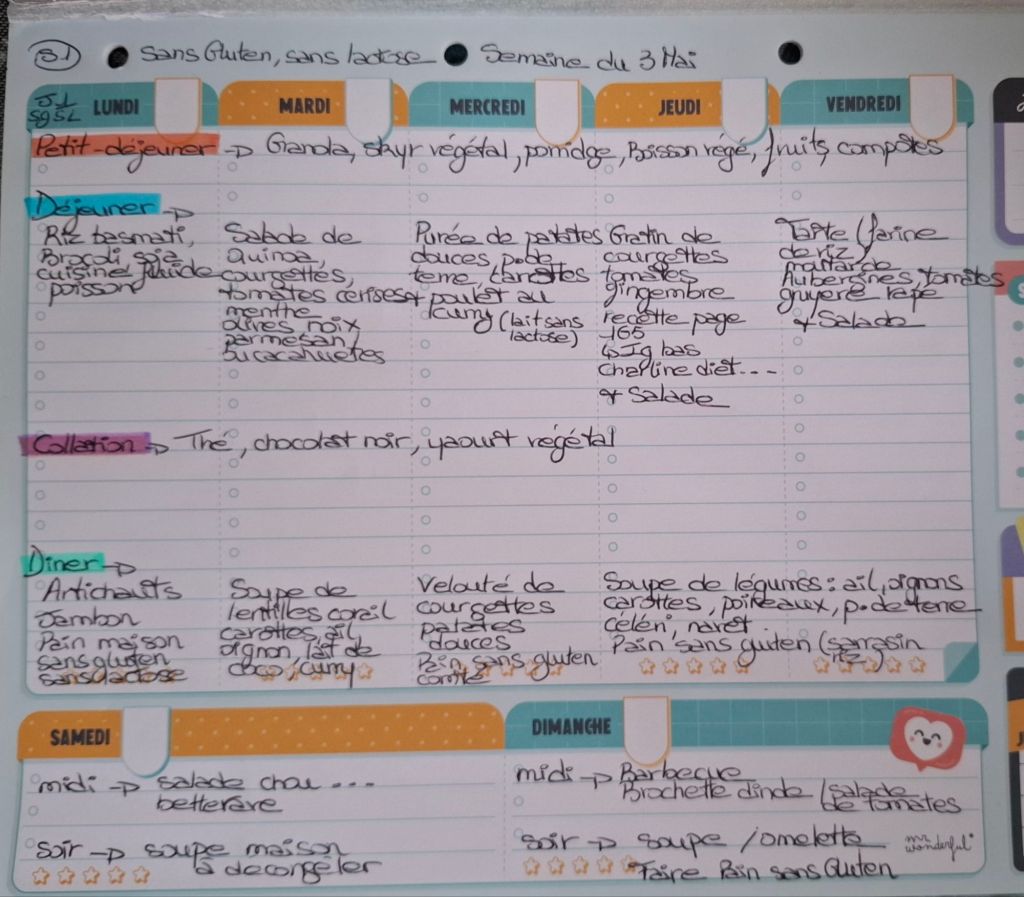 S1 Sans Gluten, sans lactose Semaine du 3 Mai
J1 SGSL LUNDI MARDI MERCREDI JEUDI VENDREDI
Petit-déjeuner → Granola, skyr végétal, porridge, Boisson végé, fruits, compôtes
Déjeuner →
Riz basmati,
Brocoli soja
cuisine fluide
poisson
Salade de
quinoa,
courgettes,
tomates cerises
menthe
olives noix
parmesan/
ou cacahuetes
Purée de patates
douces p.de
terre, carottes
+ poulet au
curry (lait sans
lactose)
Gratin de
courgettes
tomates
gingembre
recette page
165
↳ Ig bas
Charline diét...
+ Salade
Tarte (farine
de riz)
moutarde
Aubergines, tomates
gruyère rapé
+ Salade
Collation → Thé, chocolat noir, yaourt végétal
Dîner →
Artichauts
Jambon
Pain maison
sans gluten
sans lactose
Soupe de
lentilles corail
carottes, ail,
oignon, lait de
coco, curry
Velouté de
courgettes
patates
douces
Pain sans gluten
comté
Soupe de légumes: ail, oignons
carottes, poireaux, p.de terre
céléri, navet.
Pain sans gluten (sarrasin
riz)
SAMEDI
midi → salade chou ...
betterave
soir → soupe maison
à décongeler
DIMANCHE
midi → Barbecue
Brochette dinde / salade
de tomates
soir → soupe / omelette
Faire Pain sans Gluten
mr wonderful*